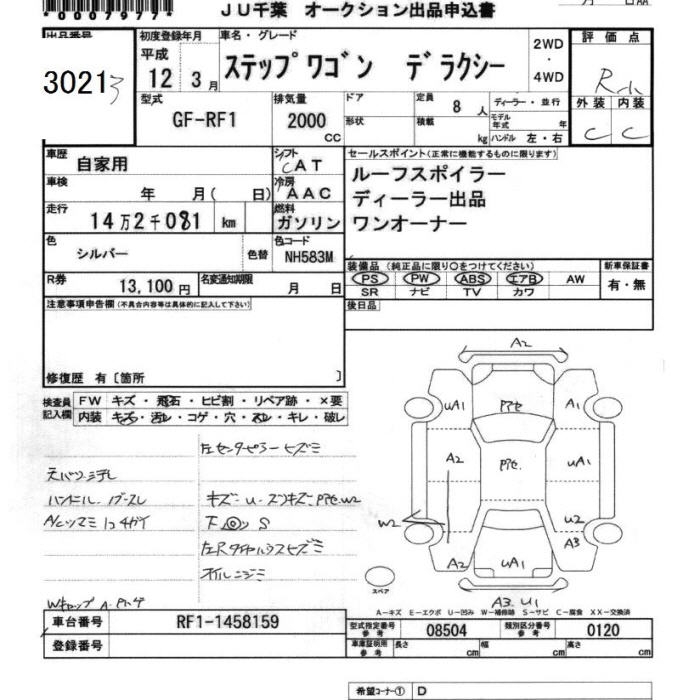 *0007977*
JU千葉 オークション出品申込書
出品番号 初度登録年月 車名・グレード 評価点
平成
30213 12 3月 ステップワゴン デラクシー 2WD・4WD
型式 排気量 ドア 定員 8人 ディーラー・並行 外装 内装
GF-RF1 2000 CC 形状 積載 kg モデル年式 年 C C
ハンドル 左・右
車歴 自家用 シフト CAT セールスポイント(正常に機能するものに限ります)
車検 年 月( 日) 冷房 AAC ルーフスポイラー
走行 14万2千081 km 燃料 ガソリン ディーラー出品
ワンオーナー
色 シルバー 色替 色コード NH583M
装備品(純正品に限り○をつけてください) 新車保証書
R券 13,100円 名変通知期限 月 日 PS PW ABS エアB AW 有・無
SR ナビ TV カワ
注意事項申告欄(不具合内容等は具体的に記入して下さい) 後日品
修復歴 有〔箇所 〕
検査員記入欄 FW キズ・飛石・ヒビ割・リペア跡・×要
内装 キズ・汚レ・コゲ・穴・スレ・キレ・破レ
A2
UA1 A1
A2 UA1
W2 U2
A3
A2 UA1
スペア
A3 U1
A－キズ E－エクボ U－凹み W－補修跡 S－サビ C－腐食 XX－交換済
車台番号 RF1-1458159 型式指定番号 参考 08504 類別区分番号 参考 0120
登録番号 車庫証明用 参考 長さ cm 幅 cm 高さ cm
希望コーナー① D